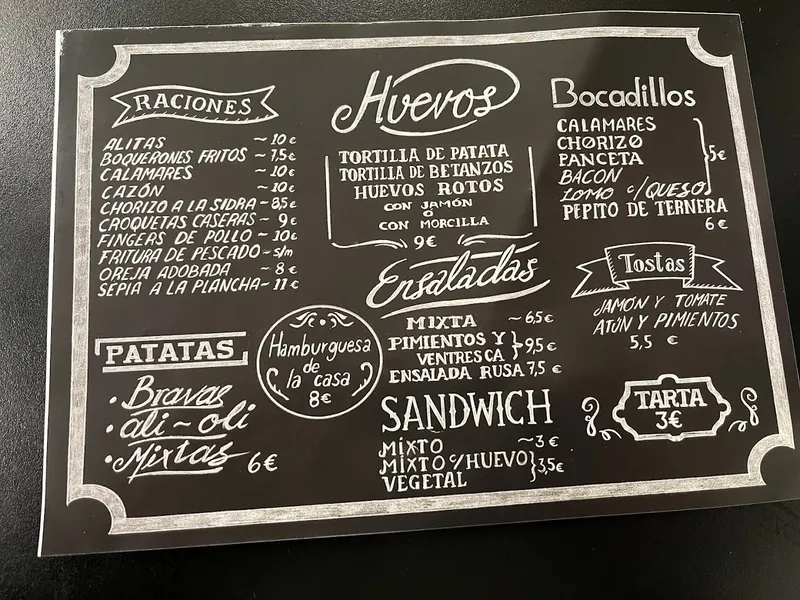 RACIONES
ALITAS ~ 10 €
BOQUERONES FRITOS ~ 7,5 €
CALAMARES ~ 10 €
CAZÓN ~ 10 €
CHORIZO A LA SIDRA ~ 8,5 €
CROQUETAS CASERAS ~ 9 €
FINGERS DE POLLO ~ 10 €
FRITURA DE PESCADO ~ s/m
OREJA ADOBADA ~ 8 €
SEPIA A LA PLANCHA ~ 11 €
PATATAS
• Bravas
• ali~oli
• Mixtas 6€
Hamburguesa
de
la casa
8€
Huevos
TORTILLA DE PATATA
TORTILLA DE BETANZOS
HUEVOS ROTOS
CON JAMÓN
O
CON MORCILLA
9€
Ensaladas
MIXTA ~ 6,5€
PIMIENTOS Y
VENTRESCA } 9,5€
ENSALADA RUSA 7,5 €
SANDWICH
MIXTO ~ 3 €
MIXTO c/HUEVO
VEGETAL } 3,5€
Bocadillos
CALAMARES
CHORIZO
PANCETA
BACON
LOMO c/QUESO } 5€
PEPITO DE TERNERA
6 €
Tostas
JAMÓN Y TOMATE
ATÚN Y PIMIENTOS
5,5 €
TARTA
3€